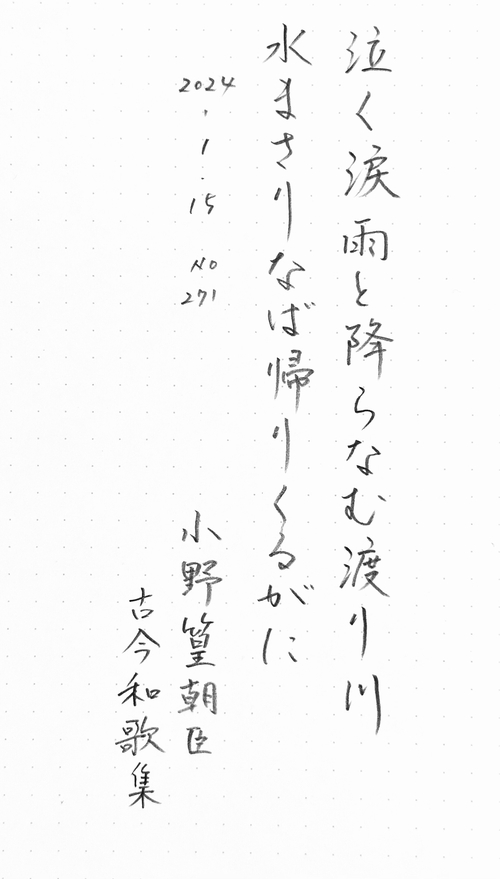 泣く涙雨と降らなむ渡り川
水まさりなば帰りくるがに
2024.1.15 No 271
小野篁朝臣
古今和歌集